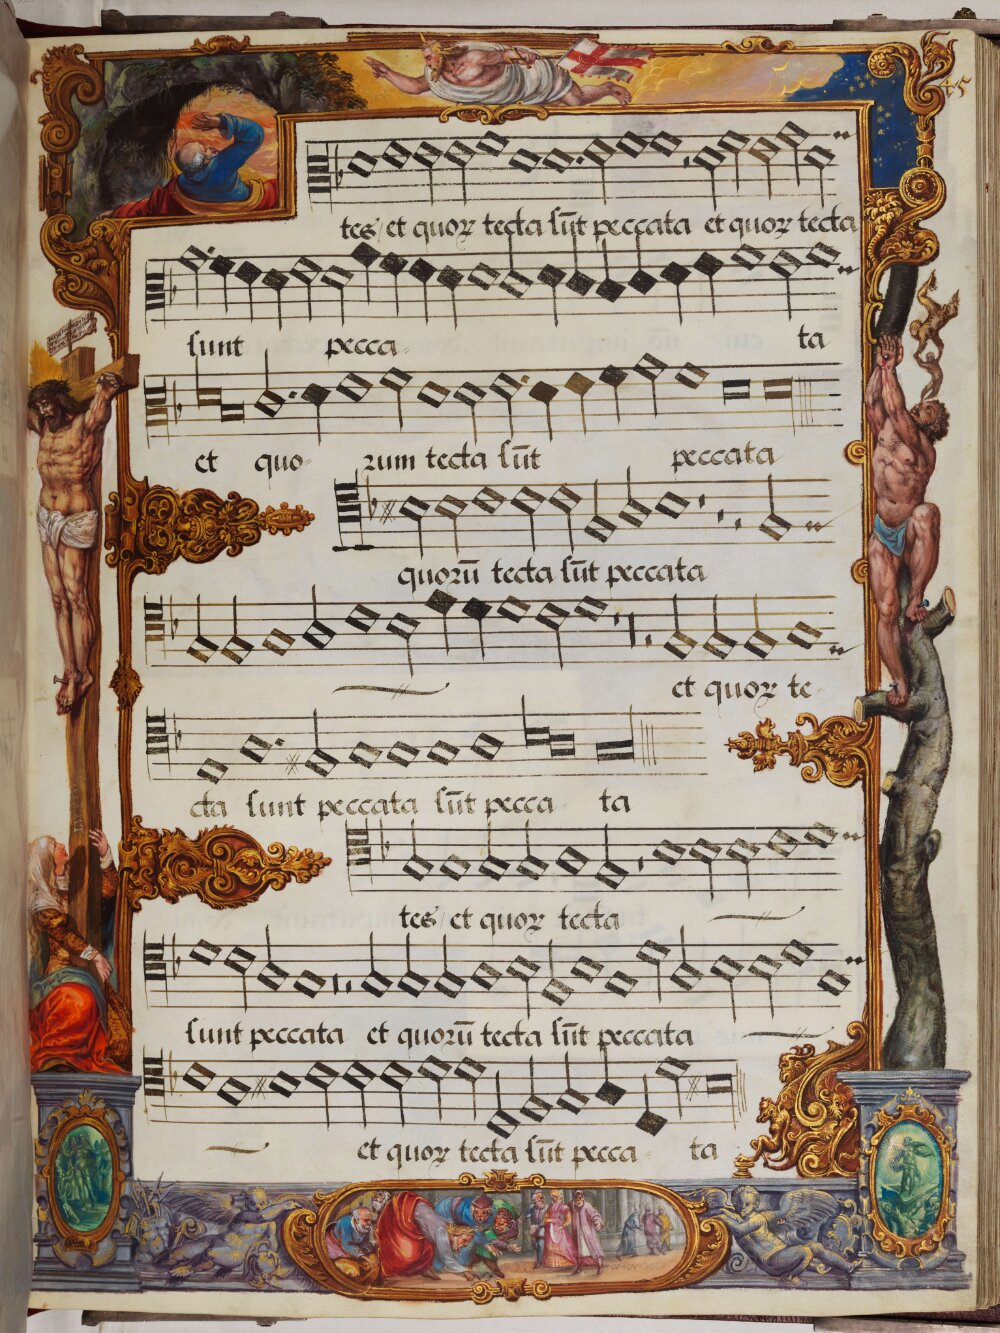 45
tes et quoꝝ tecta sūt peccata et quoꝝ tecta
sunt pecca- ta
et quo- rum tecta sūt peccata
quorū tecta sūt peccata
et quoꝝ te-
cta sunt peccata sūt pecca- ta
tes et quoꝝ tecta
sunt peccata et quorū tecta sūt peccata
et quoꝝ tecta sūt pecca- ta